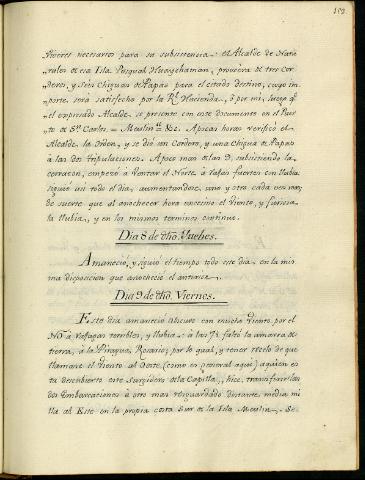 152
viveres necesarios para su subsistencia: el Alcalde de Natu-
rales de esa Isla Pasqual Huaychaman, proveera de tres Cor-
deros, y seis Chiguas de Papas para el citado destino, cuyo im-
porte será satisfecho por la Rl Hacienda, ó por mi, luego qe
el expresado Alcalde, se presente con este documento en el Puer-
to de Sn Carlos = Meulin &c. Apocas horas verificó el
Alcalde la Orden, y se dio un Cordero, y una Chigua de Papas
á las dos tripulaciones. Apoco mas de las 9, subsistiendo la
cerrazon, empezó á Ventar el Norte á rafas fuertes con llubia
siguió asi todo el dia, aumentandose uno y otro cada vez mas,
de suerte que al anochecer hera recissimo el viento, y furiosa
la llubia, y en los mismos terminos continuó.
Dia 8 de dho. Juebes.
Amaneció, y siguió el tiempo todo este dia en la mis-
ma disposicion que anocheció el anterior.
Dia 9 de dho. Viernes.
Este dia amaneció obscuro con mucho viento por el
NO á rafagas terribles, y llubia: á las 7½ faltó la amarra de
tierra, á la Piragua, Rosario; por lo qual, y tener rezelo de que
llamare el viento al Oeste (como en general aqui) á quien es-
ta descubierto este surgidero de la Capilla, hice transferir las
dos Embarcaciones á otro mas resguardado distante media mi-
lla al Este en la propia costa Sur de la Isla Meulin. Se-